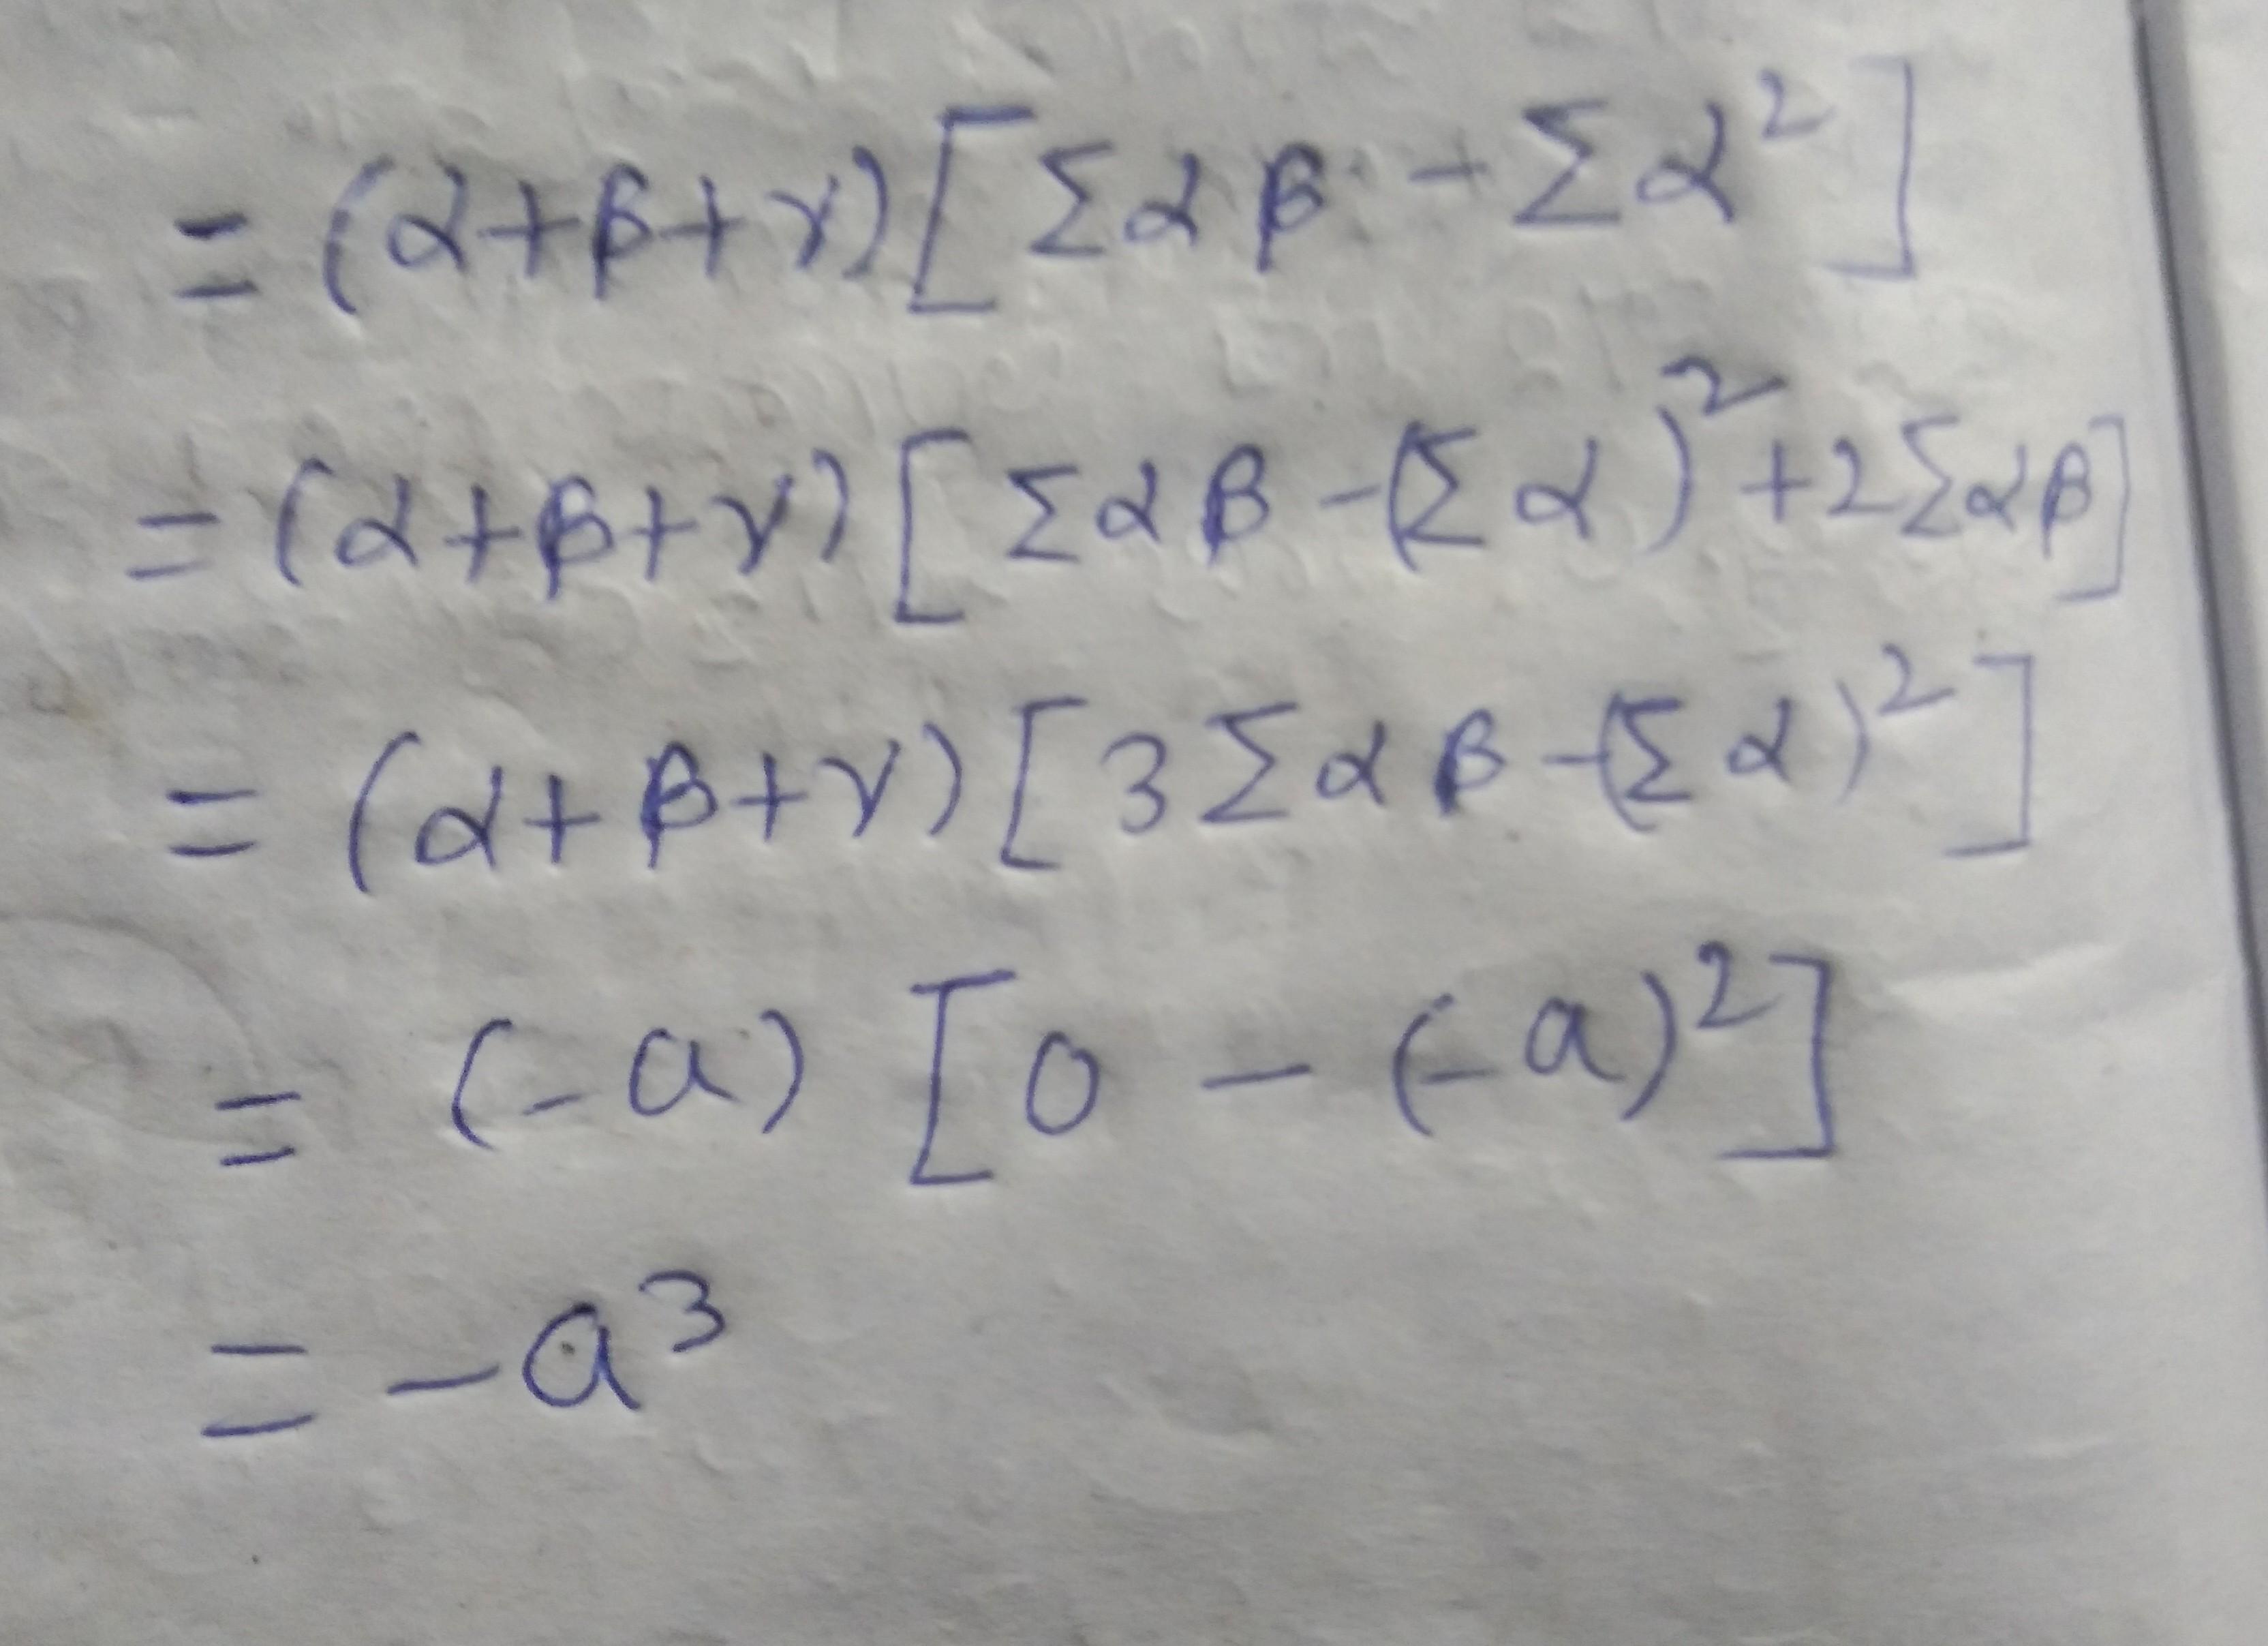 = (α+β+γ)[Σαβ - Σα²]
= (α+β+γ)[Σαβ -(Σα)²+2Σαβ]
= (α+β+γ)[3Σαβ-(Σα)²]
= (-a) [0 - (-a)²]
= -a³